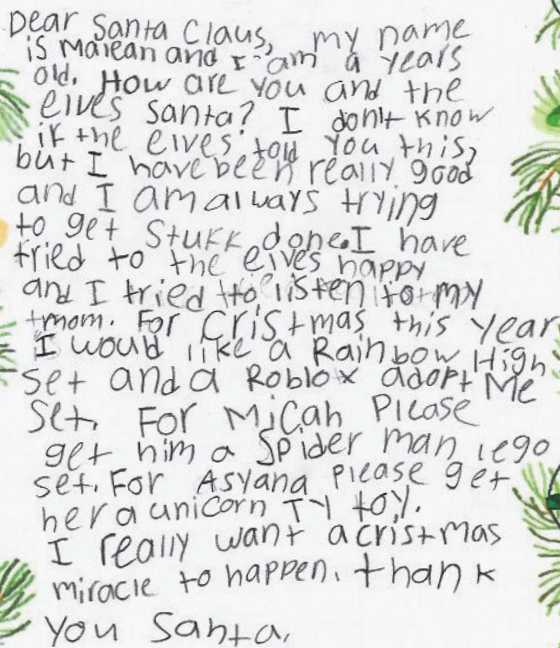 Dear Santa Claus, my name
is Malean and I am a years
old. How are you and the
elves Santa? I don't know
if the elves told you this,
but I have been really good
and I am always trying
to get stuff done. I have
tried to the elves happy
and I tried to listen to my
mom. For Cristmas this year
I would like a Rainbow High
set and a Roblox adopt Me
set. For Micah Please
get him a Spider man lego
set. For Asyana Please get
her a unicorn TY toy.
I really want a cristmas
miracle to happen. thank
you Santa.